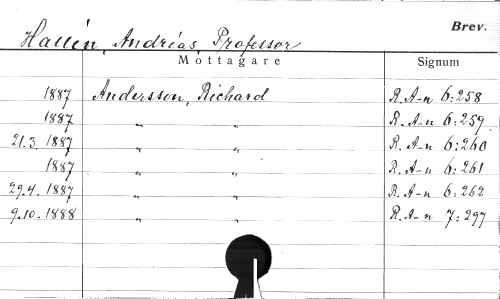 Brev.
Hallén, Andréas, Professor
Mottagare Signum
1887 Andersson, Richard R. A-n 6:258
1887 " " R. A-n 6:259
21.3. 1887 " " R. A-n 6:260
1887 " " R. A-n 6:261
29.4. 1887 " " R. A-n 6:262
9.10. 1888 " " R. A-n 7:297